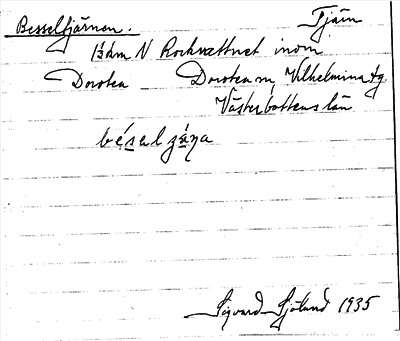 Besseltjärnen. Tjärn
1½ km N Rocksvattnet inom
Dorotea Dorotea sn, Vilhelmina tg
Västerbottens län
Sigvard Sjölund 1935